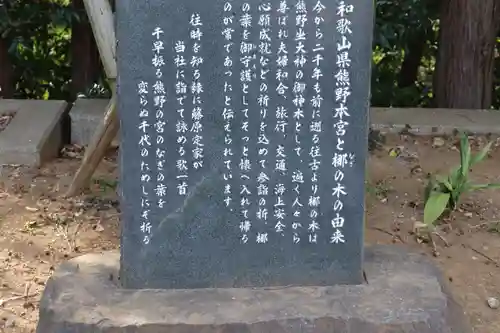 和歌山県熊野本宮と梛の木の由来
なぎ
今から二千年も前に遡る往古より梛の木は
熊野坐大神の御神木として、遍く人々から
尊ばれ夫婦和合、旅行、交通、海上安全、
心願成就などの祈りを込めて参詣の折、梛
の葉を御守護としてそっと懐へ入れて帰る
のが常であったと伝えられています。
往時を知る縁に藤原定家が
当社に詣でて詠める歌一首
千早ふる熊野の宮のなぎの葉を
変らぬ千代のためしにぞ祈る